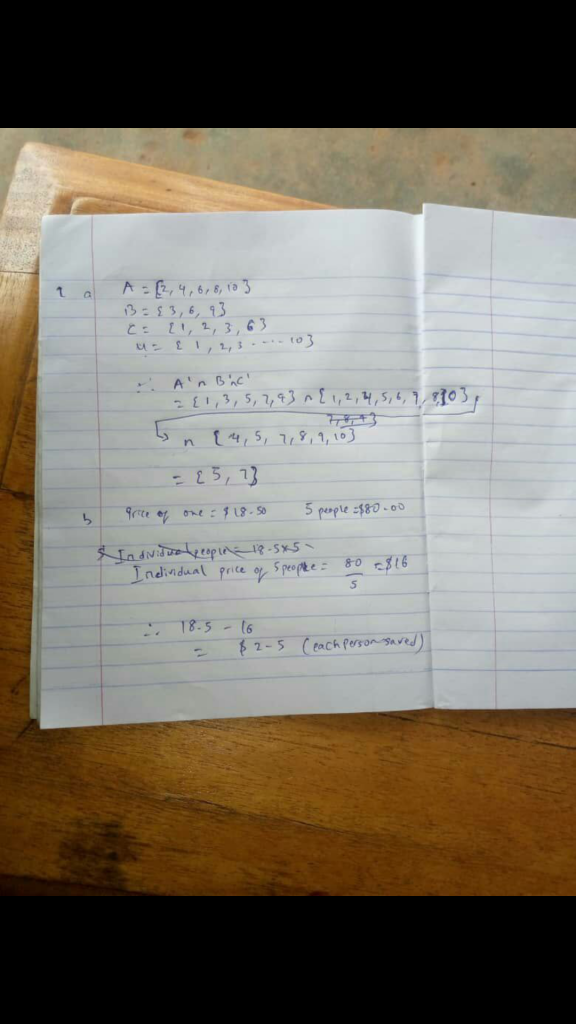 1 a A = {2, 4, 6, 8, 10}
B = {3, 6, 9}
C = {1, 2, 3, 6}
U = {1, 2, 3 ...... 10}
∴ A' n B' n C'
= {1, 3, 5, 7, 9} n {1, 2, 4, 5, 6, 7, 8, 10}
7, 8, 9}
n {4, 5, 7, 8, 9, 10}
= {5, 7}
b Price of one = $18.50 5 people = $80.00
5 Individual people = 18.5x5 =
Individual price of 5 people = 80/5 = $16
∴ 18.5 - 16
= $2.5 (each person saved)